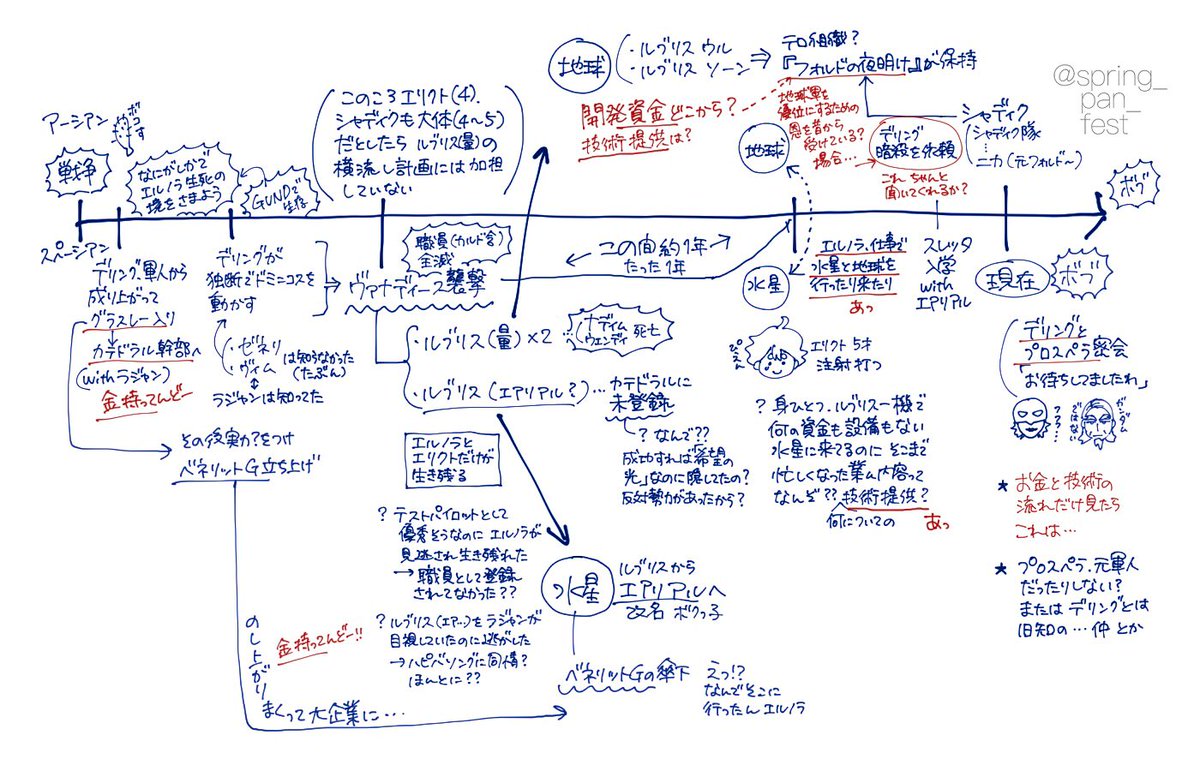 @spring_
pan_
fest
地球
・ルブリス ウル
・ルブリス ソーン
⇒
テロ組織?
『フォルドの夜明け』が保持
開発資金どこから?
技術提供は?
地球軍を
優位にするための
恩を昔から
受けている?
場合…
デリング
暗殺を依頼
これ ちゃんと
聞いてくれるか?
シャディク
(シャディク隊
…
ニカ(元フォルド〜)
地球
アーシアン
戦争
スペーシアン
なにがしかで
エルノラ生死の
境をさまよう
GUNDで
生存
このころエリクト(4)、
シャディクも大体(4〜5)
だとしたら ルブリス(量)の
横流し計画には加担
していない
デリング、軍人から
成り上がって
グラスレー入り
カテドラル幹部へ
(withラジャン)
金持ってんどー
デリングが
独断でドミニコスを
動かす
・ゼネリ
・ヴィム
は知らなかった
(たぶん)
ラジャンは知ってた
職員(カルド含)
全滅
ヴァナディース襲撃
← この間約1年 →
たった1年
水星
エルノラ、仕事で
水星と地球を
行ったり来たり
あっ
スレッタ
入学
with
エアリアル
現在
ボブ
ボブ
デリングと
プロスペラ密会
「お待ちしてましたわ」
・ルブリス(量)×2
ナディム
ウェンディ
死亡
・ルブリス(エアリアル?)…カテドラルに
未登録
? なんで??
成功すれば「希望の
光」なのに隠してたの?
反対勢力があったから?
ぴえん
エリクト 5才
注射打つ
? 身ひとつ、ルブリス一機で
何の資金も設備もない
水星に来てるのに そこまで
忙しくなった業務内容って
なんぞ?? 技術提供?
何についての
あっ
その後実力?をつけ
ベネリットG立ち上げ
エルノラと
エリクトだけが
生き残る
? テストパイロットとして
優秀そうなのに エルノラが
見逃され生き残れた
→ 職員として登録
されてなかった??
? ルブリス(エアー)をラジャンが
目視していたのに逃がした
→ハピバソングに同情?
ほんとに??
水星
ルブリスから
エアリアルへ
改名 ボクっ子
ベネリットGの傘下
えっ!?
なんでそこに
行ったん エルノラ
金持ってんどー!!
のし上がり
まくって大企業に…
★ お金と技術の
流れだけ見たら
これは…
★ プロスペラ、元軍人
だったりしない?
または デリングとは
旧知の…仲 とか